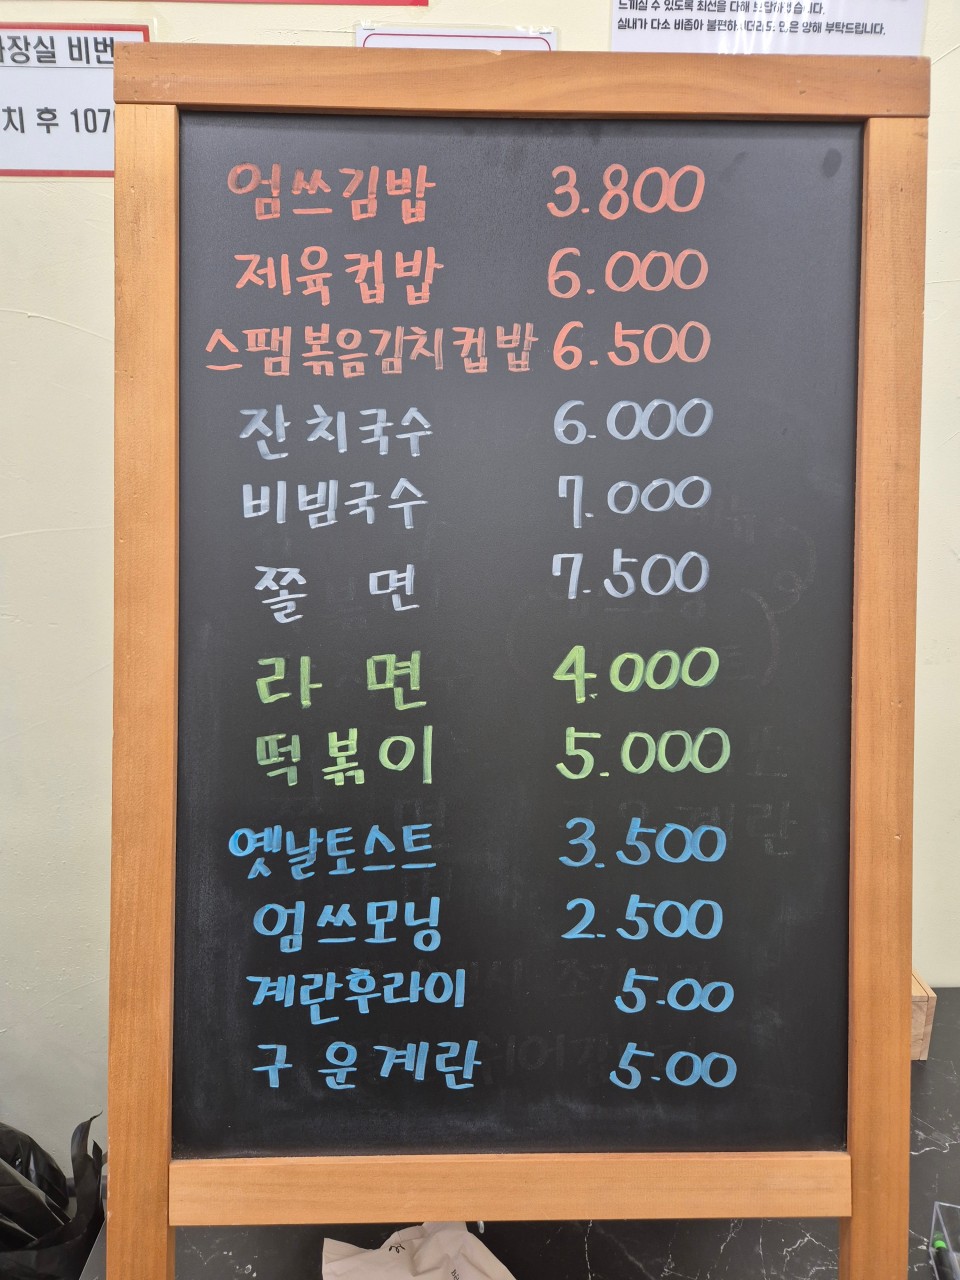 느끼실 수 있도록 최선을 다해 보답하겠습니다.
실내가 다소 비좁아 불편하시더라도 양해 부탁드립니다.
화장실 비번
치 후 107
엄쓰김밥 3.800
제육컵밥 6.000
스팸볶음김치컵밥 6.500
잔치국수 6.000
비빔국수 7.000
쫄 면 7.500
라 면 4.000
떡볶이 5.000
옛날토스트 3.500
엄쓰모닝 2.500
계란후라이 5.00
구운계란 5.00